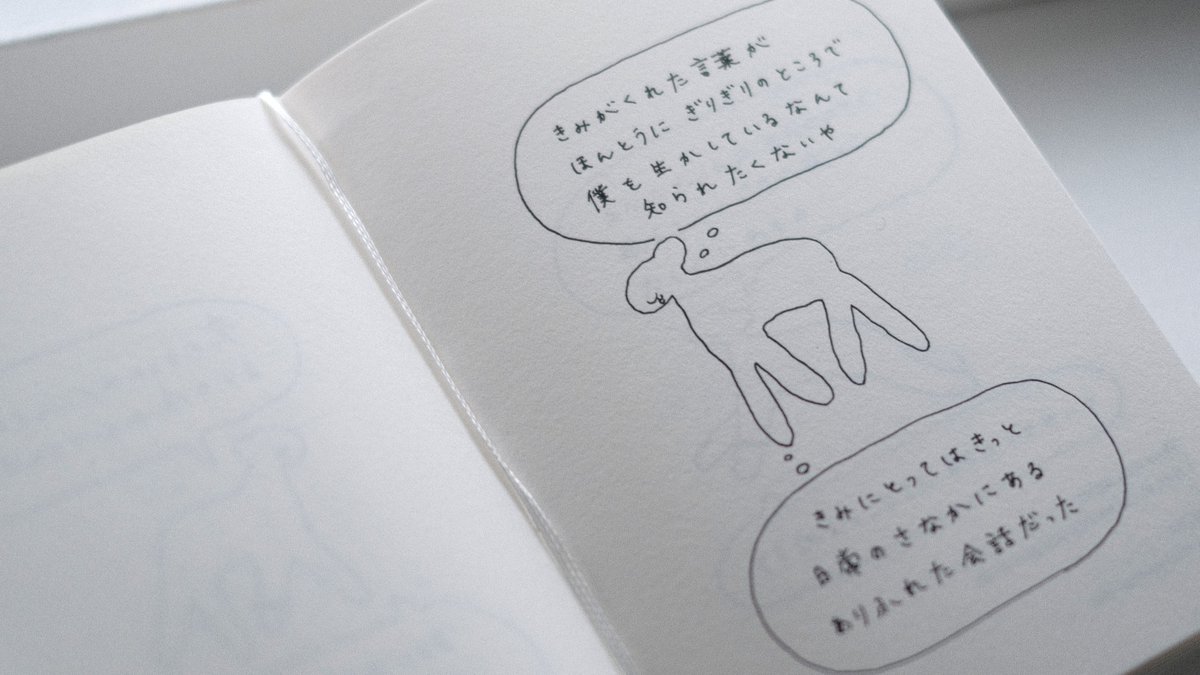 きみがくれた言葉が
ほんとうに ぎりぎりのところで
僕を生かしているなんて
知られたくないや
きみにとってはきっと
日常のさなかにある
ありふれた会話だった